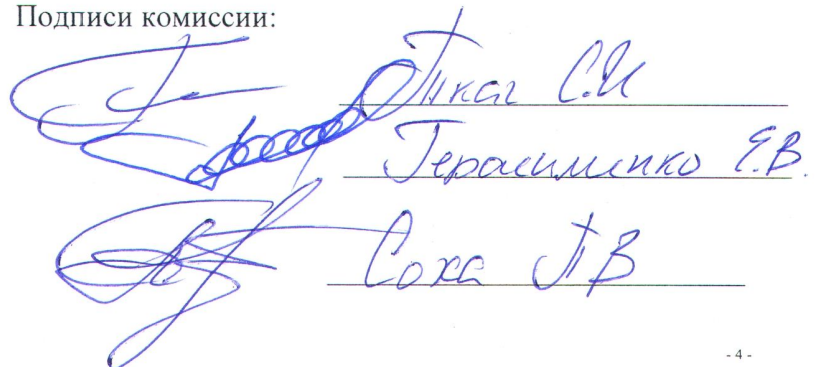 Подписи комиссии:
Ткач С.И
Герасименко Е.В.
Соха П В
- 4 -